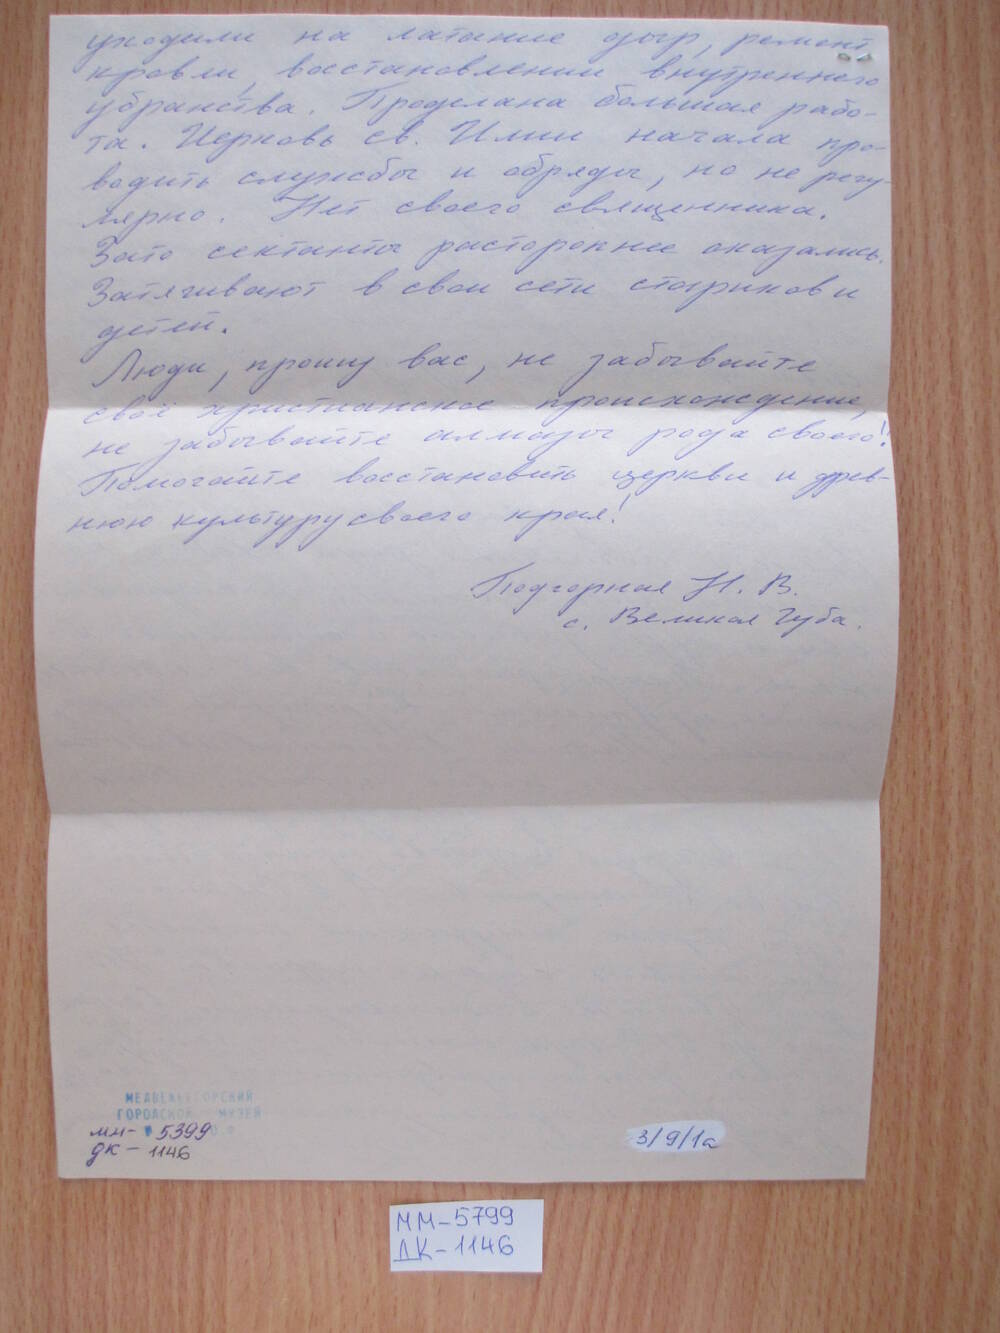 уходили на латание дыр, ремонт
кровли, восстановлении внутреннего
убранства. Проделана большая рабо-
та. Церковь св. Илии начала про-
водить службы и обряды, но не регу-
лярно. Нет своего священника.
Зато сектанты расторопнее оказались.
Затягивают в свои сети стариков и
детей.
Люди, прошу вас, не забывайте
своё христианское происхождение,
не забывайте рода своего!
Помогайте восстановить церкви и древ-
нюю культуру своего края!
Подгорная Н. В.
с. Великая Губа.
МЕДВЕЖЬЕГОРСКИЙ
ГОРОДСКОЙ МУЗЕЙ
мм- 5399
дк - 1146
3/9/1а
ММ-5799
ДК-1146